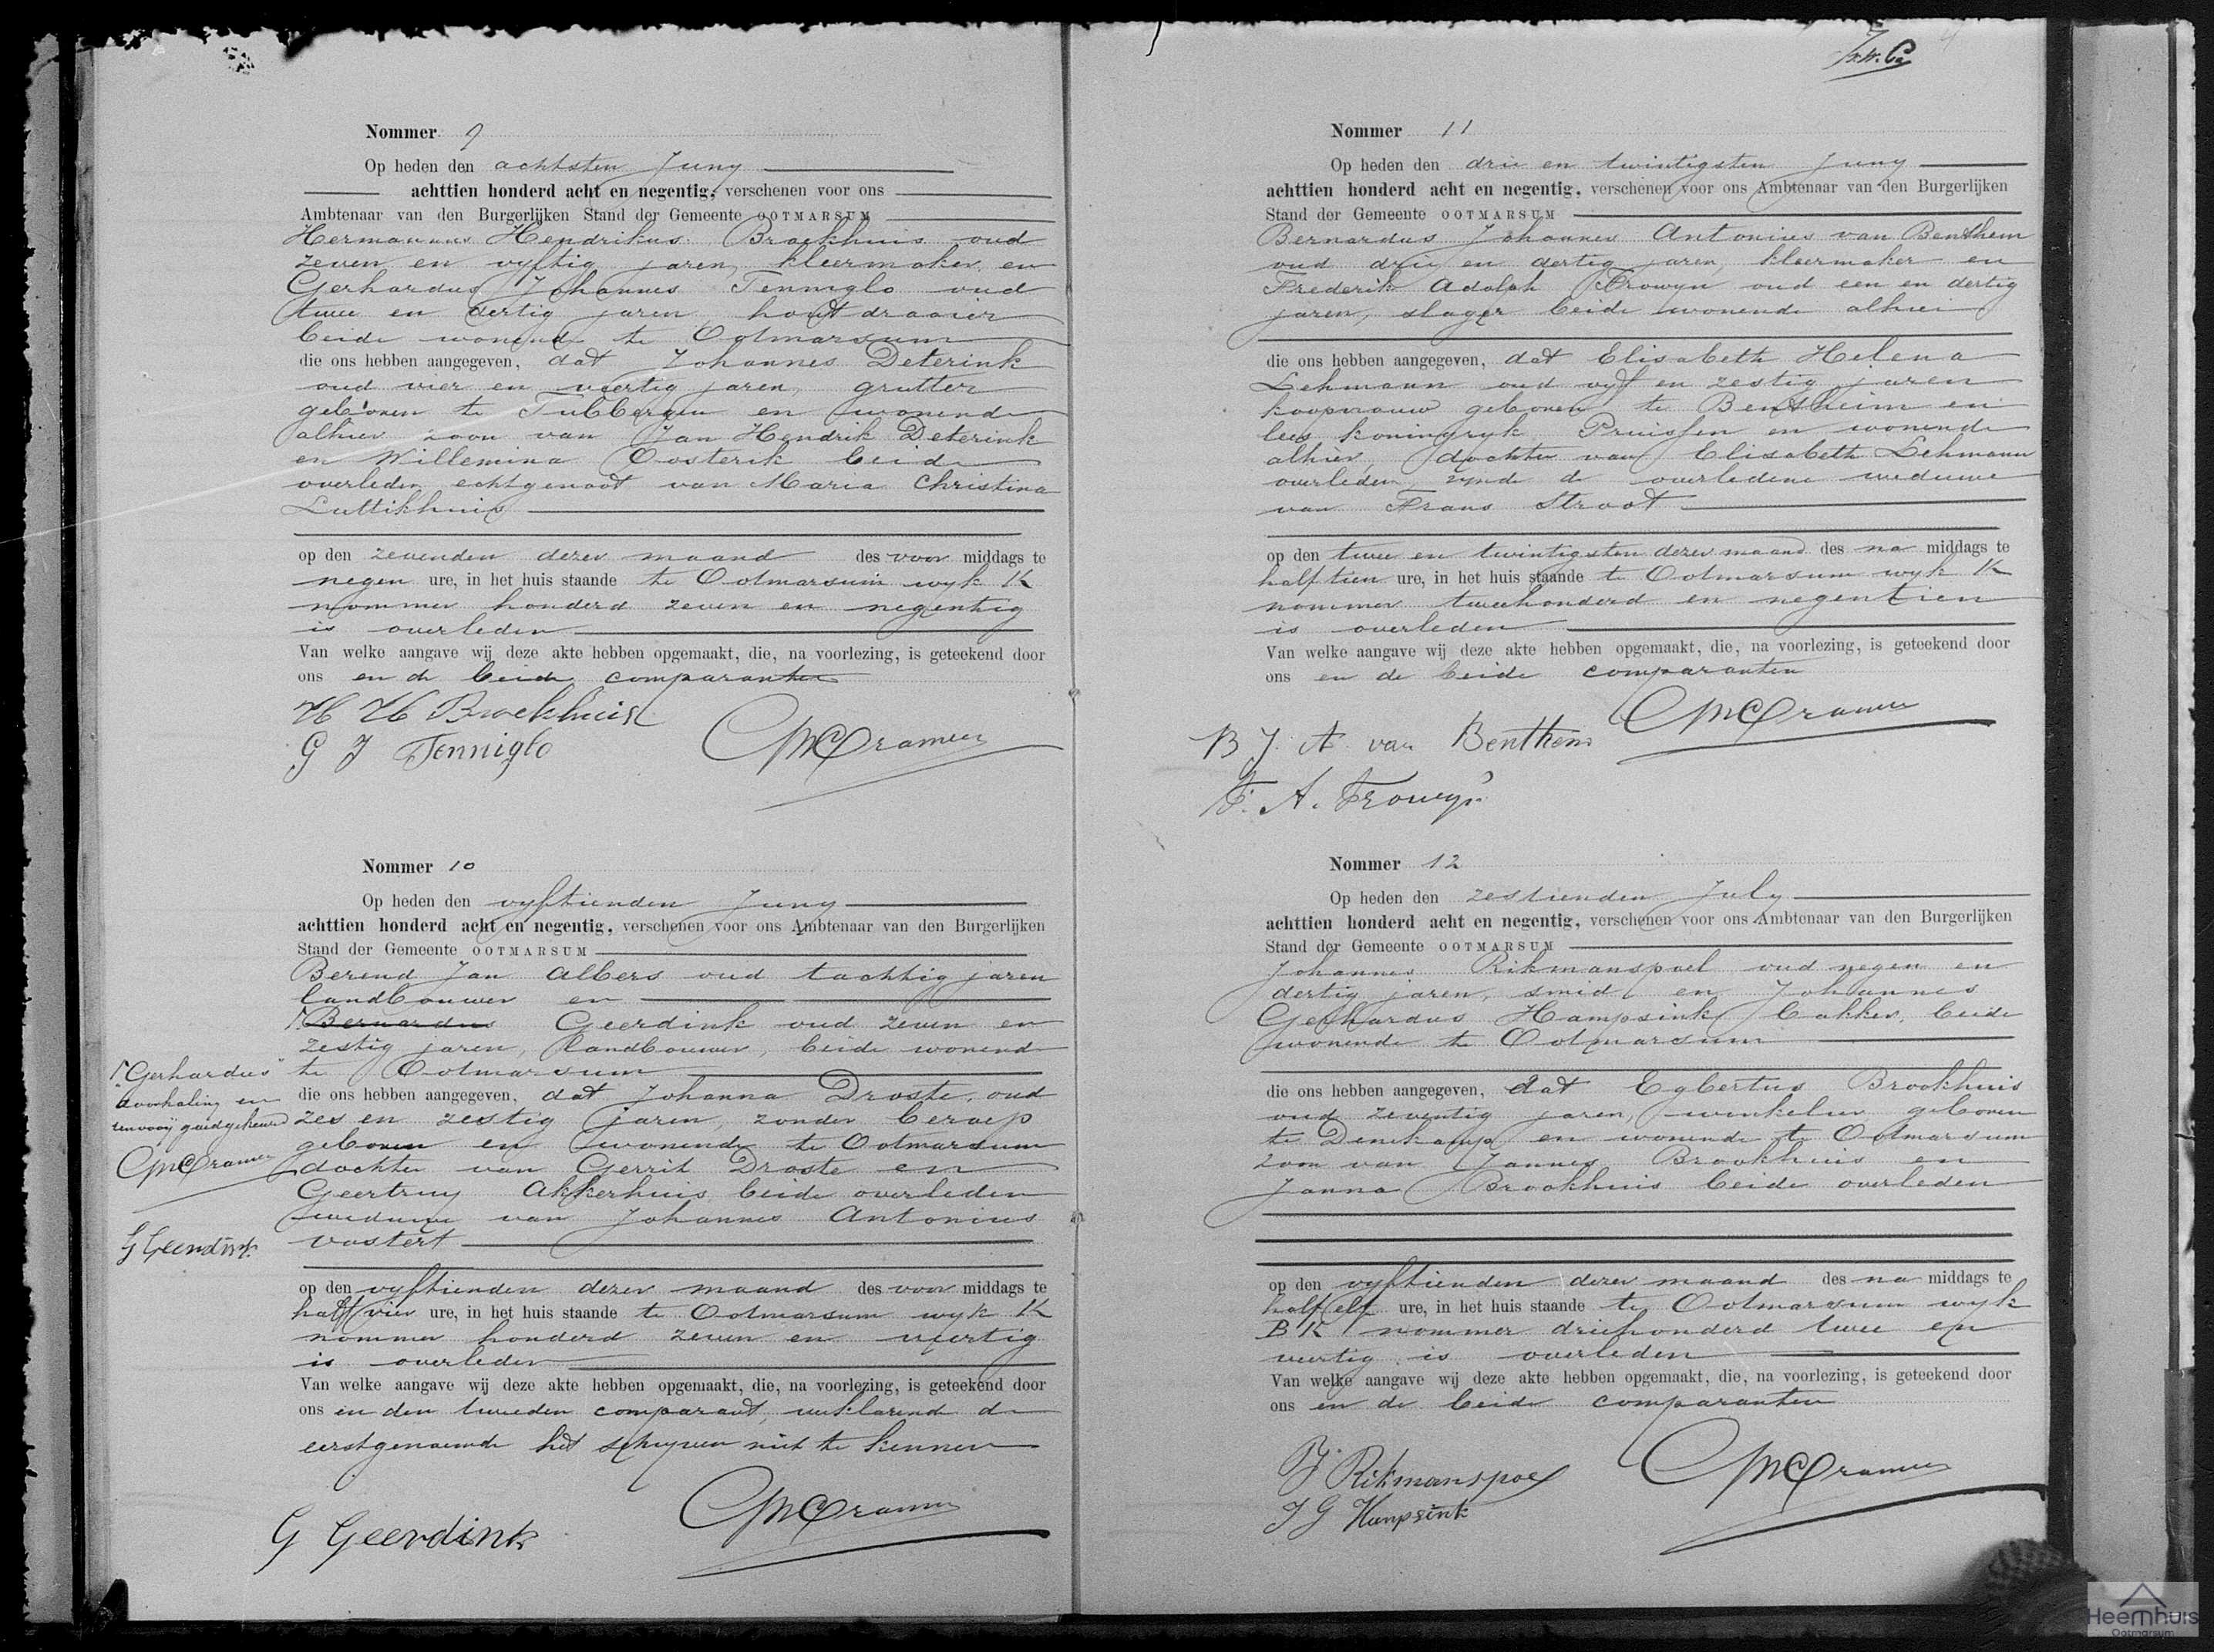 Nommer 9
Op heden den achtsten Juny
achttien honderd acht en negentig, verschenen voor ons
Ambtenaar van den Burgerlijken Stand der Gemeente OOTMARSUM
Hermannus Hendrikus Broekhuis oud
zeven en vyftig jaren, kleermaker en
Gerhardus Johannes Tenniglo oud
twee en dertig jaren, houtdraaier
beide wonende te Ootmarsum
die ons hebben aangegeven, dat Johannes Deterink
oud vier en veertig jaren, grutter
geboren te Tubbergen en wonende
alhier zoon van Jan Hendrik Deterink
en Willemina Oosterik beide
overleden echtgenoot van Maria Christina
Luttikhuis
op den zevenden dezer maand des voor middags te
negen ure, in het huis staande te Ootmarsum wyk K
nommer honderd zeven en negentig
is overleden
Van welke aangave wij deze akte hebben opgemaakt, die, na voorlezing, is geteekend door
ons en de beide comparanten
H H Broekhuis
G J Tenniglo
Cramer
Nommer 10
Op heden den vyftienden Juny
achttien honderd acht en negentig, verschenen voor ons Ambtenaar van den Burgerlijken
Stand der Gemeente OOTMARSUM
Berend Jan Albers oud tachtig jaren
landbouwer en
Bernardus Geerdink oud zeven en
zestig jaren, landbouwer, beide wonende
te Ootmarsum
"Gerhardus"
doorhaling en
renvooij goedgekeurd
Cramer
G Geerdink
die ons hebben aangegeven, dat Johanna Droste, oud
zes en zestig jaren, zonder beroep
geboren en wonende te Ootmarsum
dochter van Gerrit Droste en
Geertruy Akkerhuis beide overleden
weduwe van Johannes Antonius
vastert
op den vyftienden dezer maand des voor middags te
half vier ure, in het huis staande te Ootmarsum wyk K
nommer honderd zeven en veertig
is overleden
Van welke aangave wij deze akte hebben opgemaakt, die, na voorlezing, is geteekend door
ons en den tweeden comparant, verklarende de
eerstgenoemde het schryven niet te kennen
G Geerdink
Cramer
Nommer 11
Op heden den drie en twintigsten Juny
achttien honderd acht en negentig, verschenen voor ons Ambtenaar van den Burgerlijken
Stand der Gemeente OOTMARSUM
Bernardus Johannes Antonius van Benthem
oud drie en dertig jaren, kleermaker en
Frederik Adolph Frowyn oud een en dertig
jaren, slager beide wonende alhier
die ons hebben aangegeven, dat Elisabeth Helena
Lehmann oud vyf en zestig jaren
koopvrouw geboren te Bentheim en
lees koningryk Pruissen en wonende
alhier, dochter van Elisabeth Lehmann
overleden, zynde de overledene weduwe
van Frans Stroot
op den twee en twintigsten dezer maand des na middags te
half tien ure, in het huis staande te Ootmarsum wyk K
nommer tweehonderd en negentien
is overleden
Van welke aangave wij deze akte hebben opgemaakt, die, na voorlezing, is geteekend door
ons en de beide comparanten
Cramer
B J. A. van Benthem
F. A. Frowyn
Nommer 12
Op heden den zestienden July
achttien honderd acht en negentig, verschenen voor ons Ambtenaar van den Burgerlijken
Stand der Gemeente OOTMARSUM
Johannes Rikmanspoel oud negen en
dertig jaren, smid en Johannes
Gerhardus Hampsink bakker, beide
wonende te Ootmarsum
die ons hebben aangegeven, dat Egbertus Brookhuis
oud zeventig jaren, winkelier geboren
te Denekamp en wonende te Ootmarsum
zoon van Jannes Brookhuis en
Janna Brookhuis beide overleden
op den vyftienden dezer maand des na middags te
half elf ure, in het huis staande te Ootmarsum wyk
B K nommer driehonderd twee en
veertig is overleden
Van welke aangave wij deze akte hebben opgemaakt, die, na voorlezing, is geteekend door
ons en de beide comparanten
J Rikmanspoel
J G Hampsink
Cramer
Heemhuis
Ootmarsum